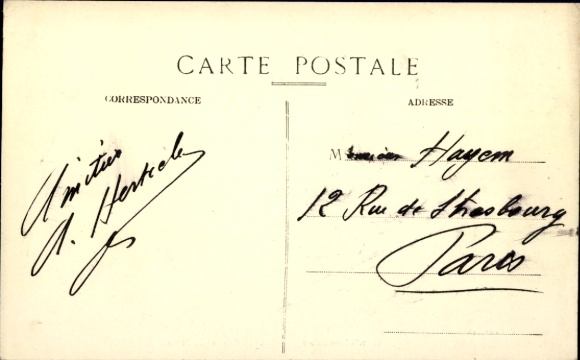 CARTE POSTALE
CORRESPONDANCE
ADRESSE
Amitiés
A.
Monsieur Hayem
12 Rue de Strasbourg
Paris